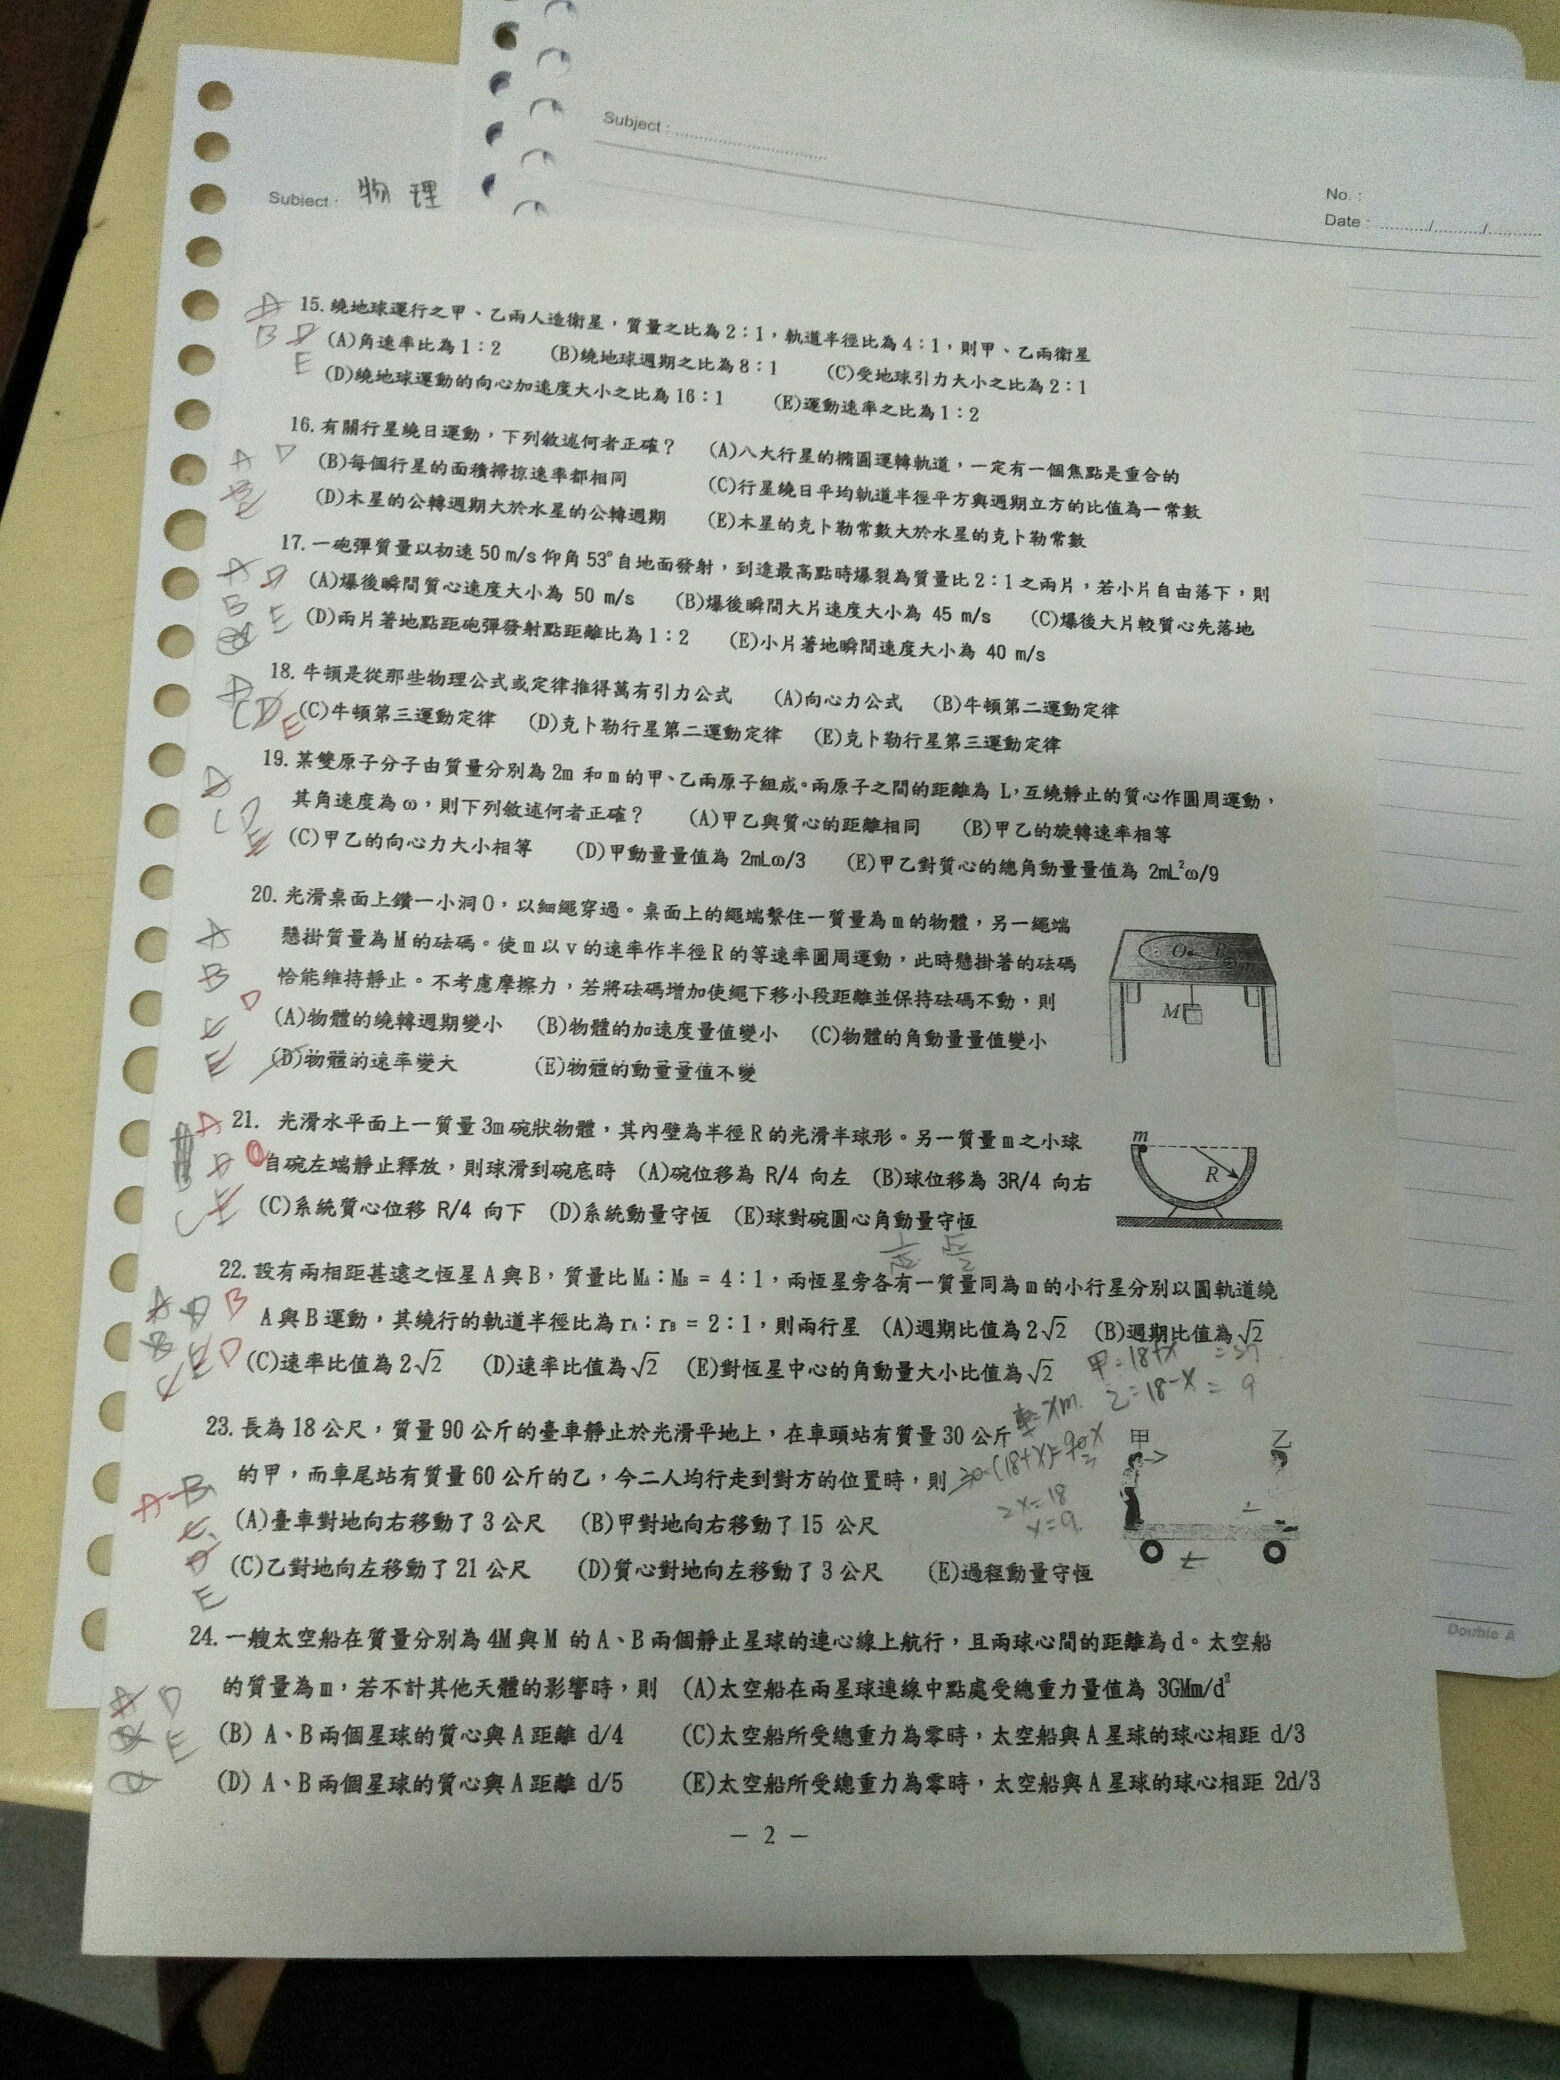 Subject :
No. :
Date :
Subject : 物理
15. 繞地球運行之甲、乙兩人造衛星，質量之比為2：1，軌道半徑比為4：1，則甲、乙兩衛星
(A)角速率比為1：2 (B)繞地球週期之比為8：1 (C)受地球引力大小之比為2：1
(D)繞地球運動的向心加速度大小之比為16：1 (E)運動速率之比為1：2
16. 有關行星繞日運動，下列敘述何者正確？ (A)八大行星的橢圓運轉軌道，一定有一個焦點是重合的
(B)每個行星的面積掃掠速率都相同 (C)行星繞日平均軌道半徑平方與週期立方的比值為一常數
(D)木星的公轉週期大於水星的公轉週期 (E)木星的克卜勒常數大於水星的克卜勒常數
17. 一砲彈質量以初速50 m/s 仰角53°自地面發射，到達最高點時爆裂為質量比2：1之兩片，若小片自由落下，則
(A)爆後瞬間質心速度大小為 50 m/s (B)爆後瞬間大片速度大小為 45 m/s (C)爆後大片較質心先落地
(D)兩片著地點距砲彈發射點距離比為1：2 (E)小片著地瞬間速度大小為 40 m/s
18. 牛頓是從那些物理公式或定律推得萬有引力公式 (A)向心力公式 (B)牛頓第二運動定律
(C)牛頓第三運動定律 (D)克卜勒行星第二運動定律 (E)克卜勒行星第三運動定律
19. 某雙原子分子由質量分別為2m 和m的甲、乙兩原子組成。兩原子之間的距離為 L，互繞靜止的質心作圓周運動，
其角速度為ω，則下列敘述何者正確？ (A)甲乙與質心的距離相同 (B)甲乙的旋轉速率相等
(C)甲乙的向心力大小相等 (D)甲動量量值為 2mLω/3 (E)甲乙對質心的總角動量量值為 2mL²ω/9
20. 光滑桌面上鑽一小洞O，以細繩穿過。桌面上的繩端繫住一質量為m的物體，另一繩端
懸掛質量為M的砝碼。使m以v的速率作半徑R的等速率圓周運動，此時懸掛著的砝碼
恰能維持靜止。不考慮摩擦力，若將砝碼增加使繩下移小段距離並保持砝碼不動，則
(A)物體的繞轉週期變小 (B)物體的加速度量值變小 (C)物體的角動量量值變小
(D)物體的速率變大 (E)物體的動量量值不變
O R m
M
21. 光滑水平面上一質量3m碗狀物體，其內壁為半徑R的光滑半球形。另一質量m之小球
自碗左端靜止釋放，則球滑到碗底時 (A)碗位移為 R/4 向左 (B)球位移為 3R/4 向右
(C)系統質心位移 R/4 向下 (D)系統動量守恆 (E)球對碗圓心角動量守恆
m
R
22. 設有兩相距甚遠之恆星A與B，質量比MA：MB = 4：1，兩恆星旁各有一質量同為m的小行星分別以圓軌道繞
A與B運動，其繞行的軌道半徑比為rA：rB = 2：1，則兩行星 (A)週期比值為2√2 (B)週期比值為√2
(C)速率比值為2√2 (D)速率比值為√2 (E)對恆星中心的角動量大小比值為√2
甲=18+x
乙=18-x = 9
23. 長為18公尺，質量90公斤的臺車靜止於光滑平地上，在車頭站有質量30公斤
的甲，而車尾站有質量60公斤的乙，今二人均行走到對方的位置時，則
(A)臺車對地向右移動了3公尺 (B)甲對地向右移動了15 公尺
(C)乙對地向左移動了21公尺 (D)質心對地向左移動了3公尺 (E)過程動量守恆
2x=18
x=9
甲 乙
24. 一艘太空船在質量分別為4M與M 的A、B兩個靜止星球的連心線上航行，且兩球心間的距離為d。太空船
的質量為m，若不計其他天體的影響時，則 (A)太空船在兩星球連線中點處受總重力量值為 3GMm/d²
(B) A、B兩個星球的質心與A距離 d/4 (C)太空船所受總重力為零時，太空船與A星球的球心相距 d/3
(D) A、B兩個星球的質心與A距離 d/5 (E)太空船所受總重力為零時，太空船與A星球的球心相距 2d/3
— 2 —
Double A